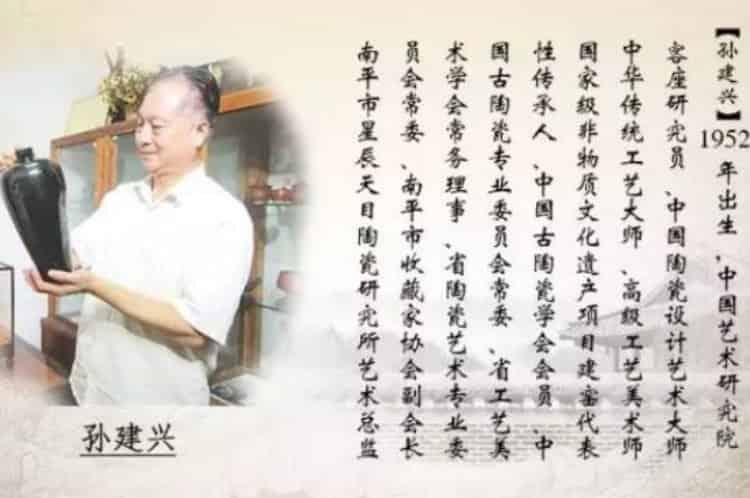 【孙建兴】1952年出生，中国艺术研究院
客座研究员、中国陶瓷设计艺术大师
中华传统工艺大师、高级工艺美术师
国家级非物质文化遗产项目建窑代表
性传承人、中国古陶瓷学会会员、中
国古陶瓷专业委员会常委、省工艺美
术学会常务理事、省陶瓷艺术专业委
员会常委、南平市收藏家协会副会长
南平市星辰天目陶瓷研究所艺术总监
孙建兴